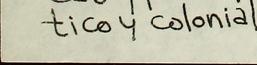 tico y colonial